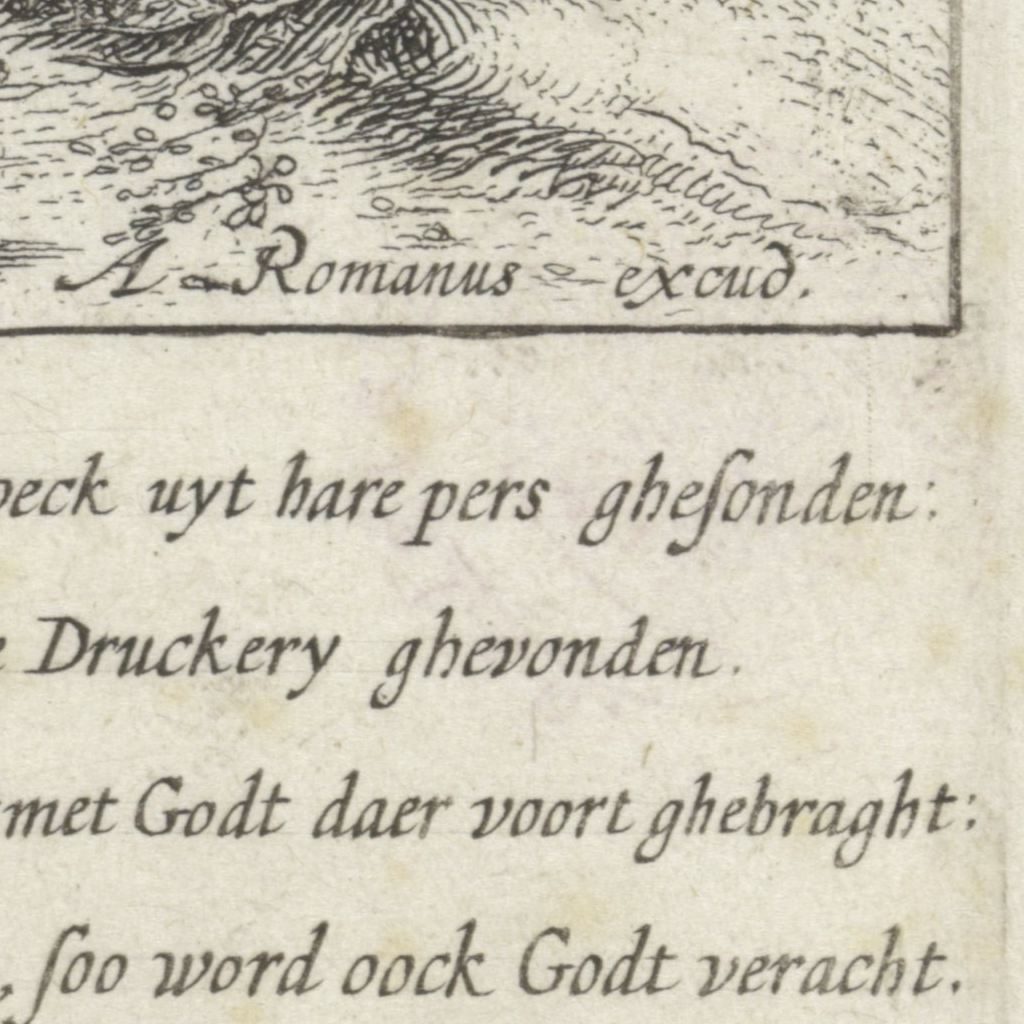 A. Romanus excud.
oeck uyt hare pers gheſonden:
e Druckery ghevonden.
met Godt daer voort ghebraght:
, ſoo word oock Godt veracht.